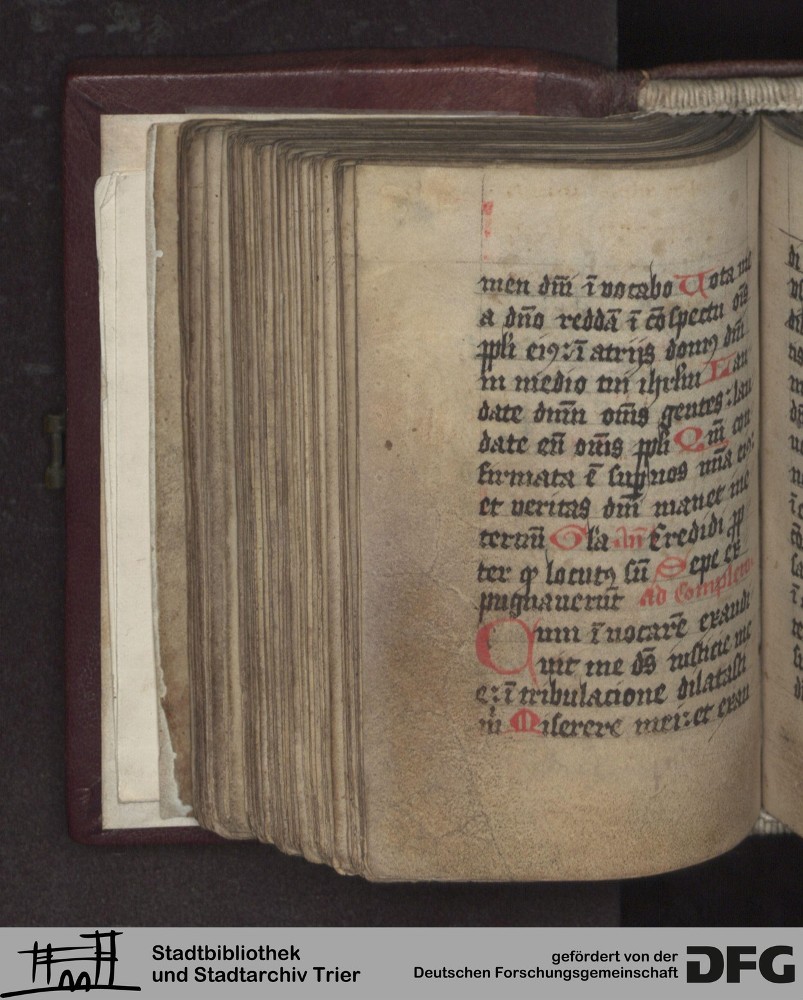 men dm̄ ī vocabo Uota me
a dn̄o reddā ī cōspectu oīs
ppli ei9: ī atrijs dom9 dn̄i
in medio tui ihrlm Lau
date dmn̄ om̄s gentes: lau
date eū om̄s ppli Qm̄ con
firmata ē sup nos mīa ei9:
et veritas dn̄i manet ine
ternū Gla An̄ Credidi pp
ter qp locut9 sū Sepe ex
pugnauerūt ad Completo
Cum īuocarē exaudi
uit me ds̄ iusticie me
e: ī tribulacione dilatasti
m̄ Miserere mei: et exau
Stadtbibliothek
und Stadtarchiv Trier
gefördert von der
Deutschen Forschungsgemeinschaft
DFG